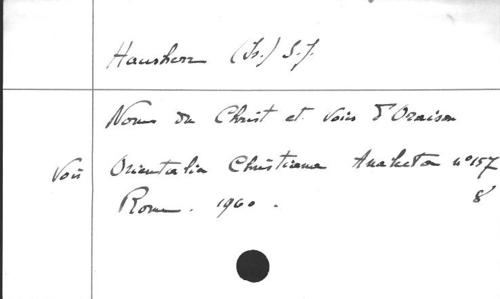 Hausherr (Is.) S.J.
Noms du Christ et voies d'Oraison
Voir Orientalia Christiana Analecta n° 157
8
Rome. 1960.